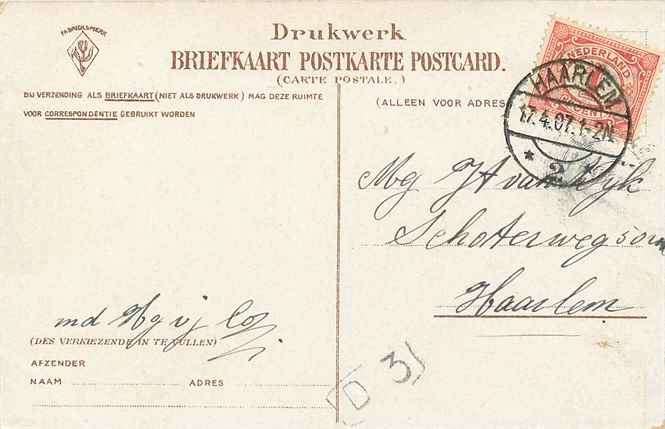 FABRIEKSMERK
Drukwerk
BRIEFKAART POSTKARTE POSTCARD.
(CARTE POSTALE.)
BIJ VERZENDING ALS BRIEFKAART (NIET ALS DRUKWERK) MAG DEZE RUIMTE
VOOR CORRESPONDENTIE GEBRUIKT WORDEN
(ALLEEN VOOR ADRES
NEDERLAND
CENT
HAARLEM
17.4.07.1-2N
* 2 *
van Dyk
Schoterweg
Haarlem
(DES VERKIEZENDE IN TE VULLEN)
AFZENDER
NAAM ADRES
D 31